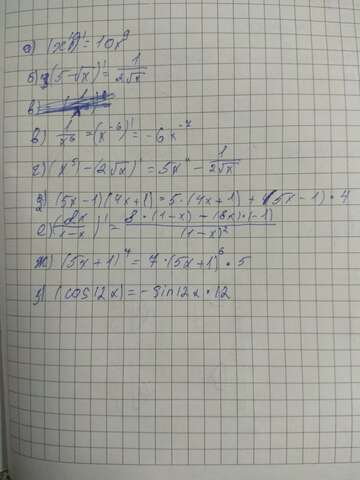 а) (x¹⁰)' = 10x⁹
б) (5-√x)' = 1/2√x
в)
в) 1/x⁶ = (x⁻⁶)' = -6x⁻⁷
г) (x⁵) - (2√x)' = 5x⁴ - 1/2√x
д) (5x-1)(4x+1) = 5·(4x+1) + (5x-1)·4
е) (8x/1-x)' = 8·(1-x) - (8x)·(-1)/(1-x)²
ж) (5x+1)⁷ = 7·(5x+1)⁶·5
з) (cos12x) = -sin12x·12